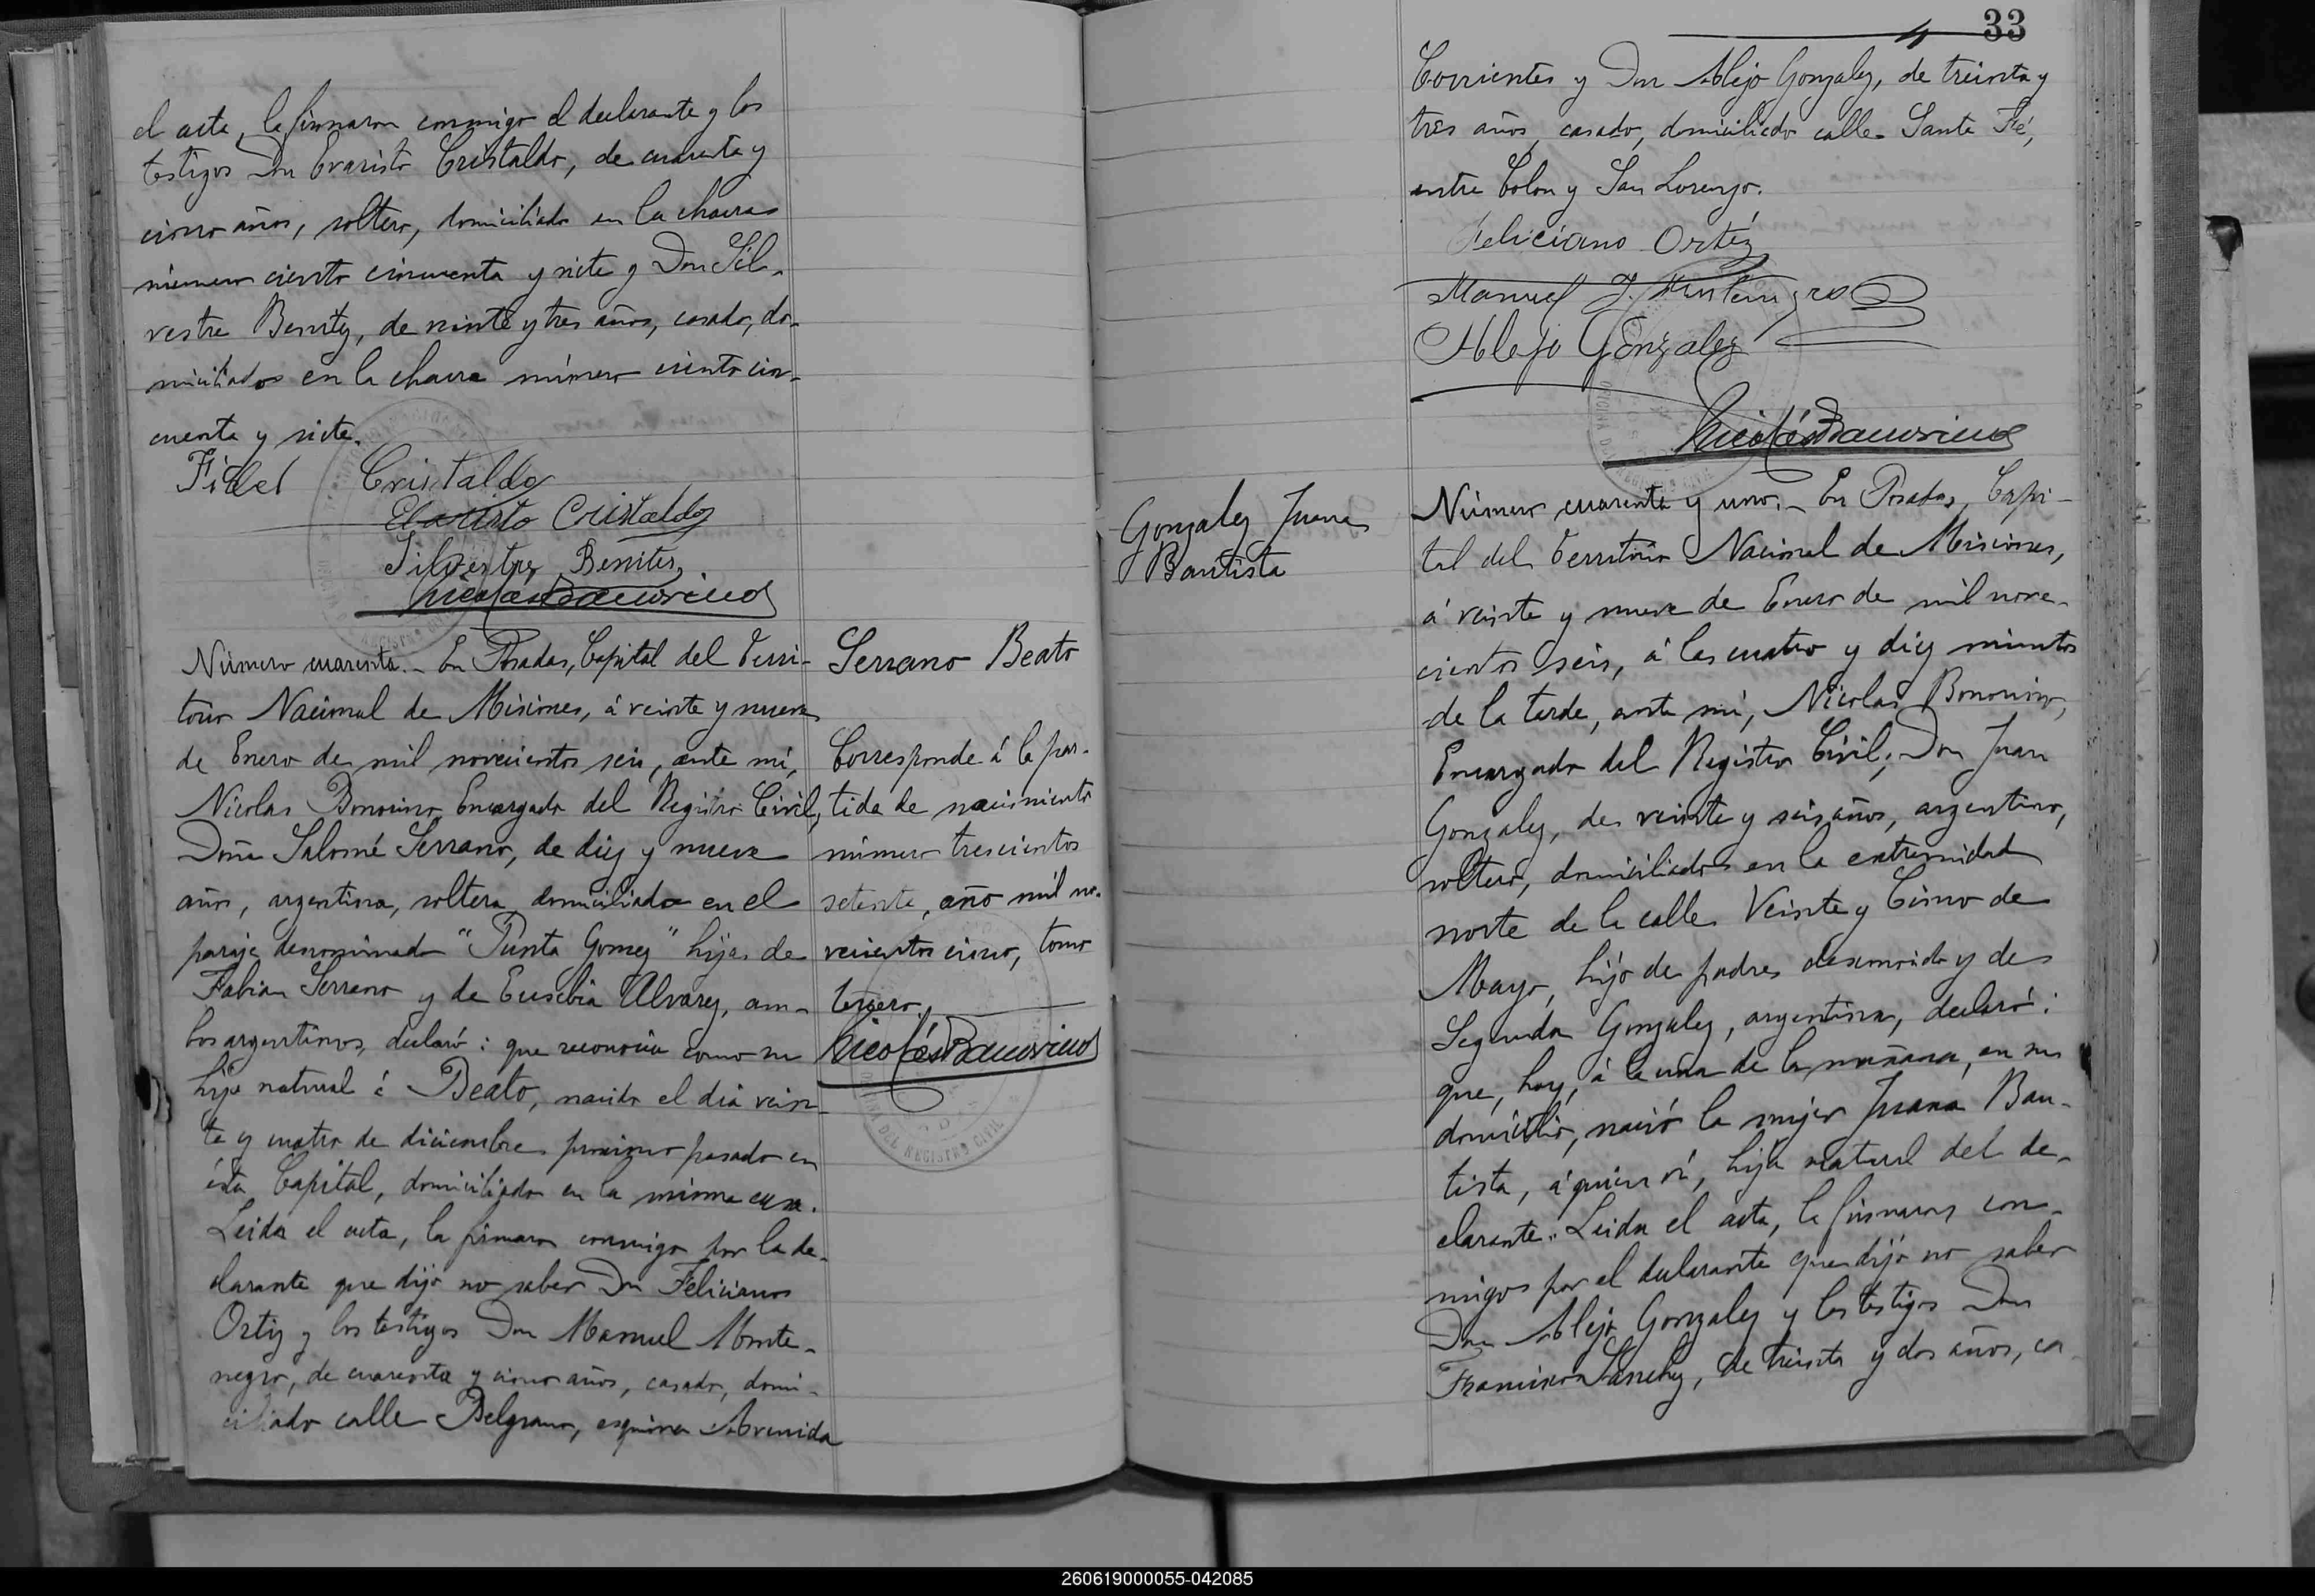 el acta, la firmaron conmigo el declarante y los
testigos Don Evaristo Cristaldo, de cuarenta y
cinco años, soltero, domiciliado en la chacra
número ciento cincuenta y siete y Don Sil-
vestre Benitez, de veinte y tres años, casado, do-
miciliados en la chacra número ciento cin-
cuenta y siete.
Fidel Cristaldo
Evaristo Cristaldo
Silvestre Benites
Nicolás Bonorino
Número cuarenta.- En Posadas, Capital del Terri-
torio Nacional de Misiones, á veinte y nueve
de Enero de mil novecientos seis, ante mí,
Nicolas Bonorino Encargado del Registro Civil,
Doña Salomé Serrano, de diez y nueve
años, argentina, soltera, domiciliada en el
paraje denominado "Punta Gomez" hija de
Fabian Serrano y de Eusebia Alvarez, am-
bos argentinos, declaró: que reconocia como su
hijo natural á Beato, nacido el dia vein-
te y cuatro de diciembre proximo pasado en
ésta Capital, domiciliado en la misma casa.
Leida el acta, la firmaron conmigo por la de-
clarante que dijo no saber Don Feliciano
Ortiz y los testigos Don Manuel Monte-
negro, de cuarenta y cinco años, casado, domi-
ciliado calle Belgrano, esquina Avenida
Serrano Beato
Corresponde á la par-
tida de nacimiento
número trescientos
setenta, año mil no-
vecientos cinco, tomo
tercero.
Nicolás Bonorino
OFICINA DEL REGISTRO CIVIL
33
Corrientes y Don Alejo Gonzalez, de treinta y
tres años, casado, domiciliado calle Santa Fé,
entre Colon y San Lorenzo.
Feliciano Ortíz
Manuel J. Montenegro
Alejo Gonzalez
Nicolás Bonorino
Gonzalez Juana
Bautista
Número cuarenta y uno.- En Posadas, Capi-
tal del Territorio Nacional de Misiones,
á veinte y nueve de Enero de mil nove-
cientos seis, á las cuatro y diez minutos
de la tarde, ante mí, Nicolas Bonorino,
Encargado del Registro Civil; Don Juan
Gonzalez, de veinte y seis años, argentino,
soltero, domiciliado en la extremidad
norte de la calle Veinte y Cinco de
Mayo, hijo de padre desconocido y de
Segunda Gonzalez, argentina, declaró:
que, hoy, á la una de la mañana, en su
domicilio, nació la mujer Juana Bau-
tista, á quien ví, hija natural del de-
clarante.- Leida el acta, la firmaron con-
migo por el declarante que dijo no saber
Don Alejo Gonzalez y los testigos Don
Francisco Sanchez, de treinta y dos años, ca
260619000055-042085